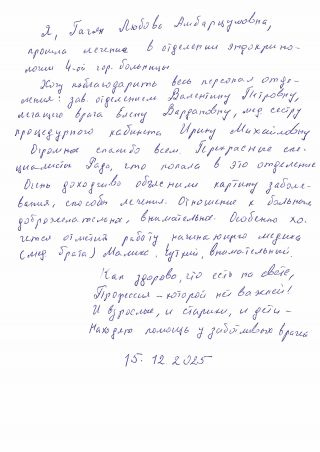 Я, Гагян Любовь Амбарцумовна,
прошла лечение в отделении эндокрино-
логии 4-ой гор. больницы
Хочу поблагодарить весь персонал отде-
ления: зав. отделением Валентину Петровну,
лечащего врача Елену Вардановну, мед. сестру
процедурного кабинета Ирину Михайловну
Огромное спасибо всем. Прекрасные спе-
циалисты. Рада, что попала в это отделение
Очень доходчиво объяснили картину заболе-
вания, способы лечения. Отношение к больным
доброжелательное, внимательное. Особенно хо-
чется отметить работу начинающего медика
(мед брата) Чуткий, внимательный.
Как здорово, что есть на свете,
Профессия – которой нет важней!
И взрослые, и старики, и дети –
Находят помощь у заботливых врачей
15.12.2025